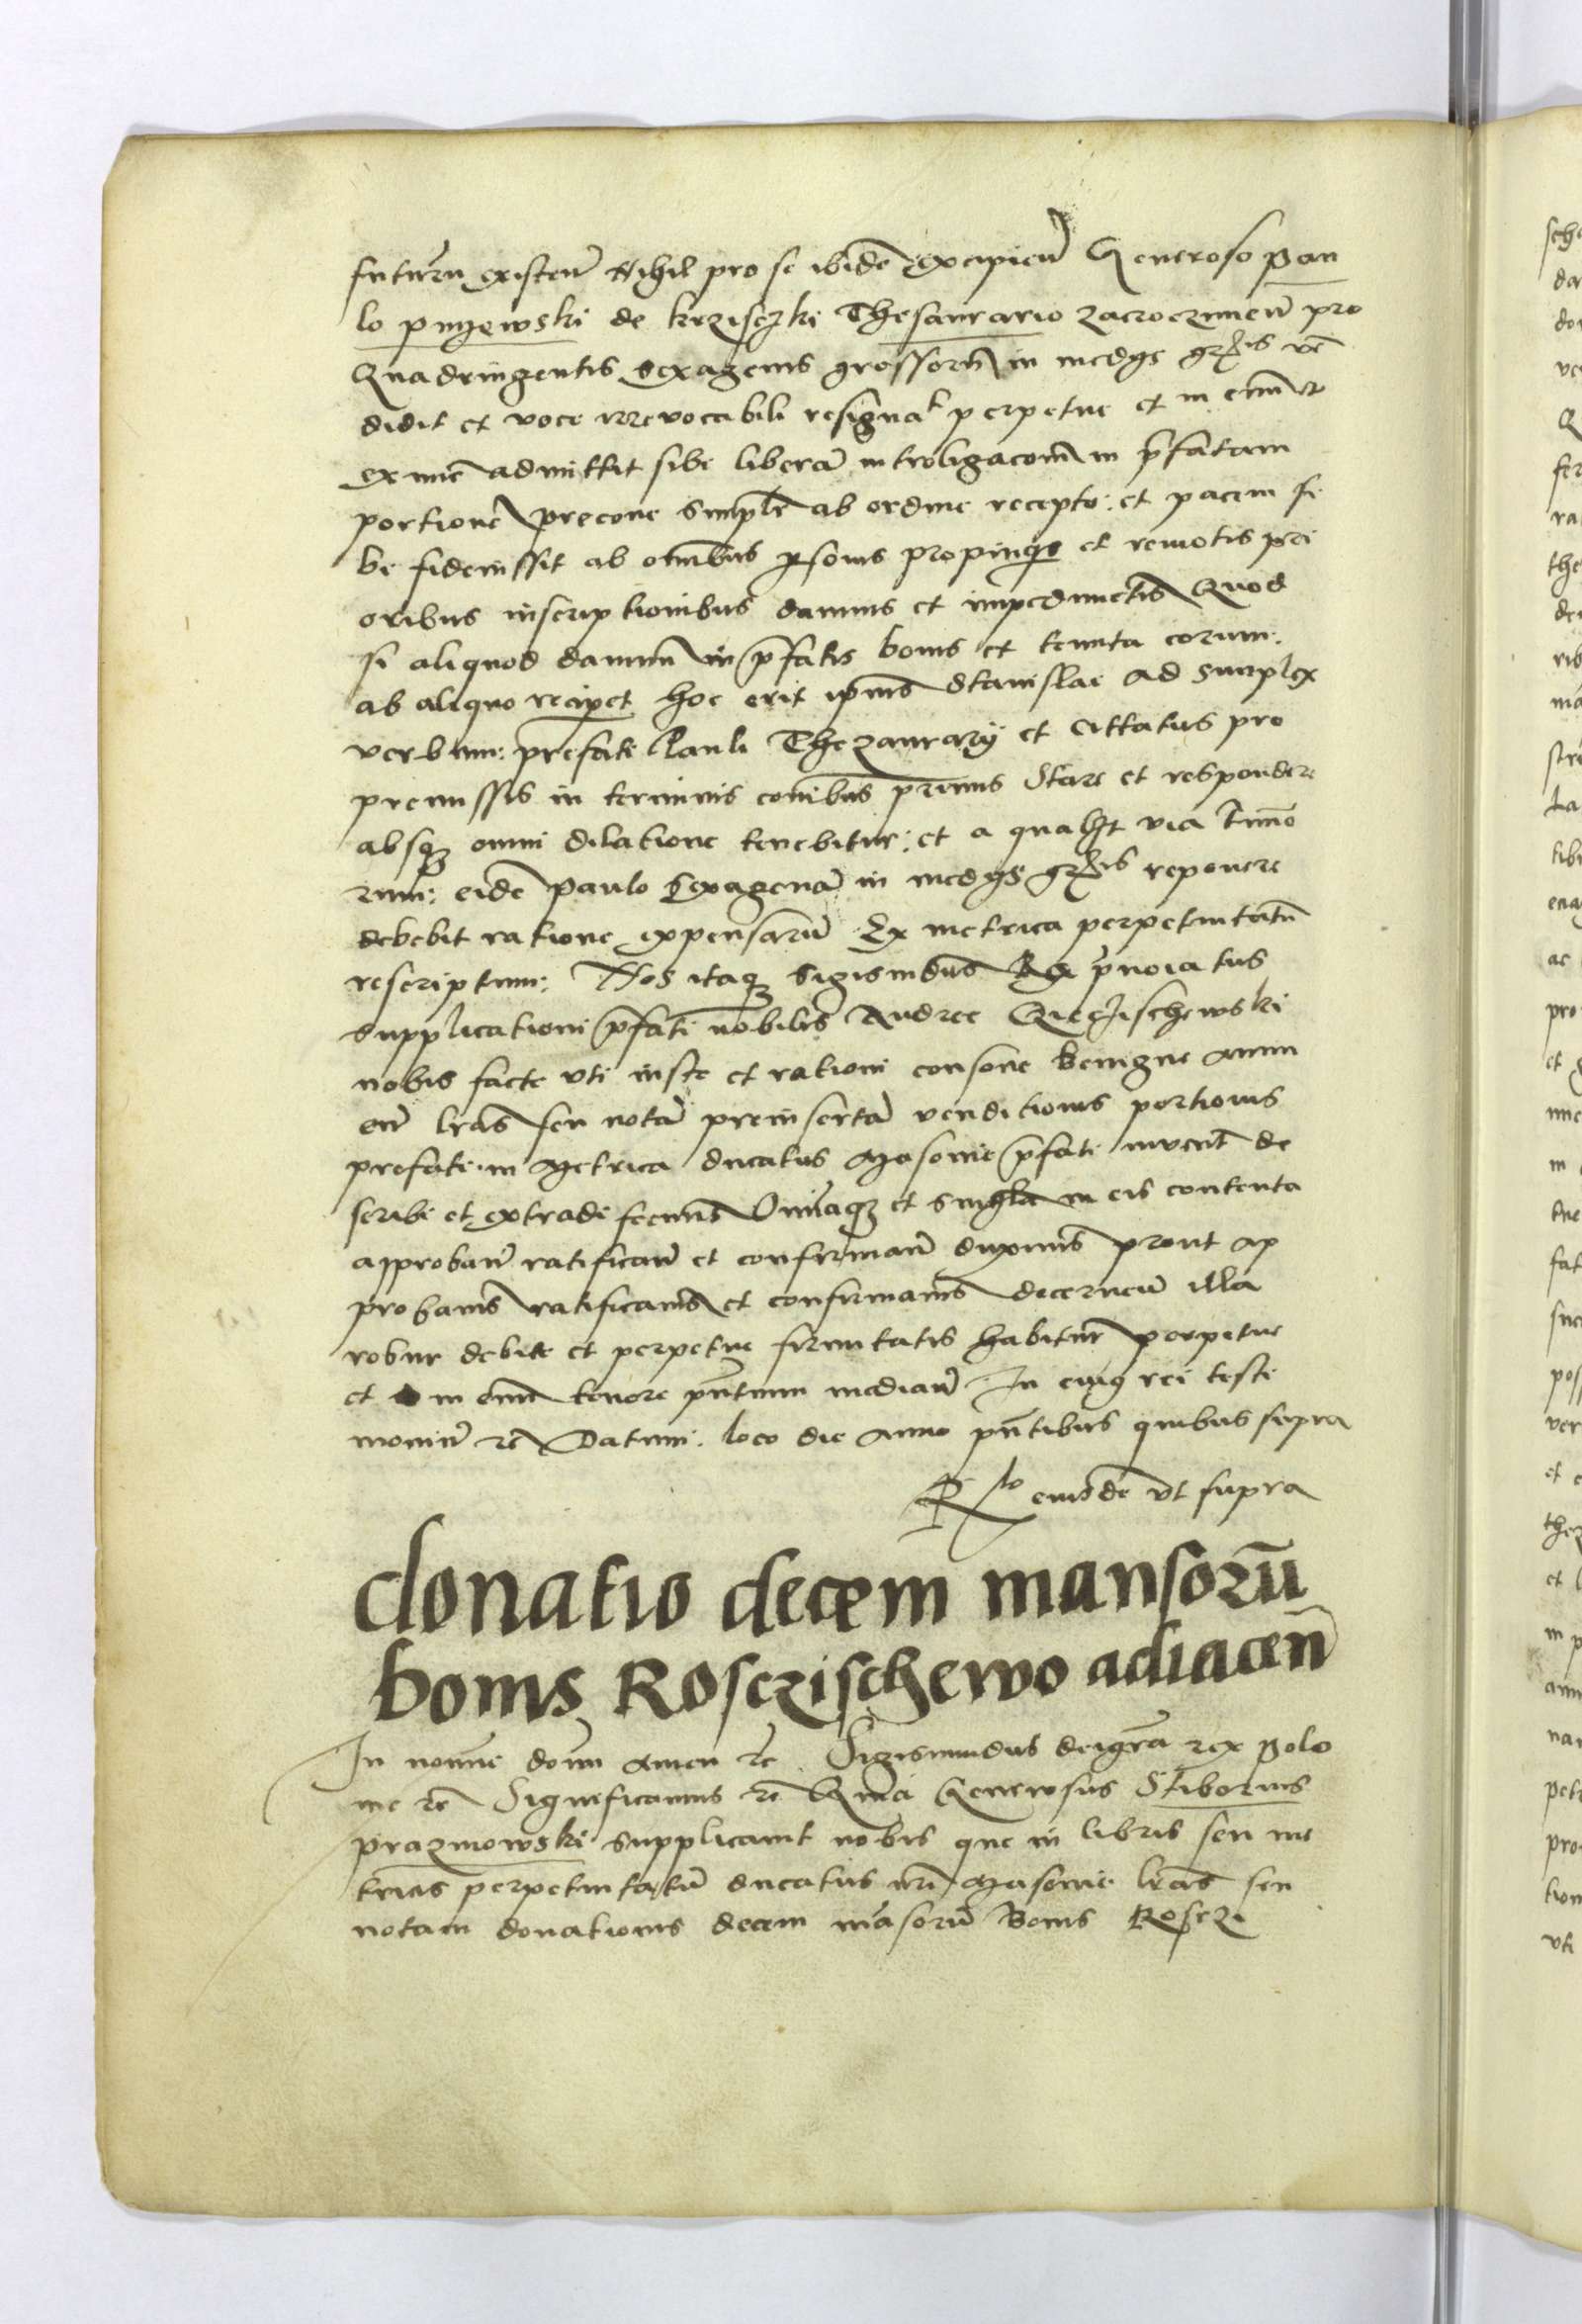 futurū existeñ Nihil pro se ibidē excipieñ Generoso Pau
lo pnyewski de krzisczki Thesaurario zacroczimeñ pro
Quadringentis sexagenis grossorū in medys grossis vē
didit et voce irrevocabili resignat perpetue et in evum et
ex nūc admittit sibi liberā introligacōm in p̄fatam
portionē precone simplr̄ ab ordine recepto: et pacem si
bi fideiussit ab oībus psonis propinqs et remotis pri
oribus inscriptionibus damnis et impedimētis Quod
si aliquod damnū in p̄fatis bonis et tenuta eorum.
ab aliquo reciperet hoc erit ipsius Stanislai ad simplex
verbum: prefati Pauli Thezaurary et cittatus pro
premissis in terminis conībus primis Stare et respondere
absqꝫ omni dilatione tenebitur: et a qualꝫt via timo
rum: eidē Paulo sexagenā in medys grossis reponere
debebit ratione expensarū Ex metrica perpetuitatū
rescriptum: Nos itaqꝫ Sigismūdus Rex p̄noiatus
supplicationi p̄fati nobilis Andree Gieczischewski
nobis facte vti iuste et rationi consone benigne annu
eñ lrās seu notā preinsertā venditionis portionis
prefate in Metrica ducatus Masovie p̄fati invent̄ de
scribi et extradi fecimus Omīaqꝫ et singla in eis contenta
approbañ ratificañ et confirmañ duximus prout ap
probamus ratificamus et confirmamus decerneñ illa
robur debite et perpetue firmitatis habitur̄ perpetue
et in evum tenore pn̄tium mediañ In cuiꝰ rei testi
moniū ꝛc̄ Datum. loco die anno pn̄tibus quibus supra
Rlo eiusdē vt supra
donatio decem mansorū
bonis Rosczischewo adiaceñ
In noīne domī amen ꝛc̄ Sigismundus dei grā rex Polo
nie ꝛc̄ Significamus ꝛc̄ Quia Generosus Stiborius
prazmowski supplicavit nobis qu̅e in libris seu me
tricis perpetuitatū ducatus nr̄i Masovie lrās seu
notam donationis decem māsorū Bonis Rosczi